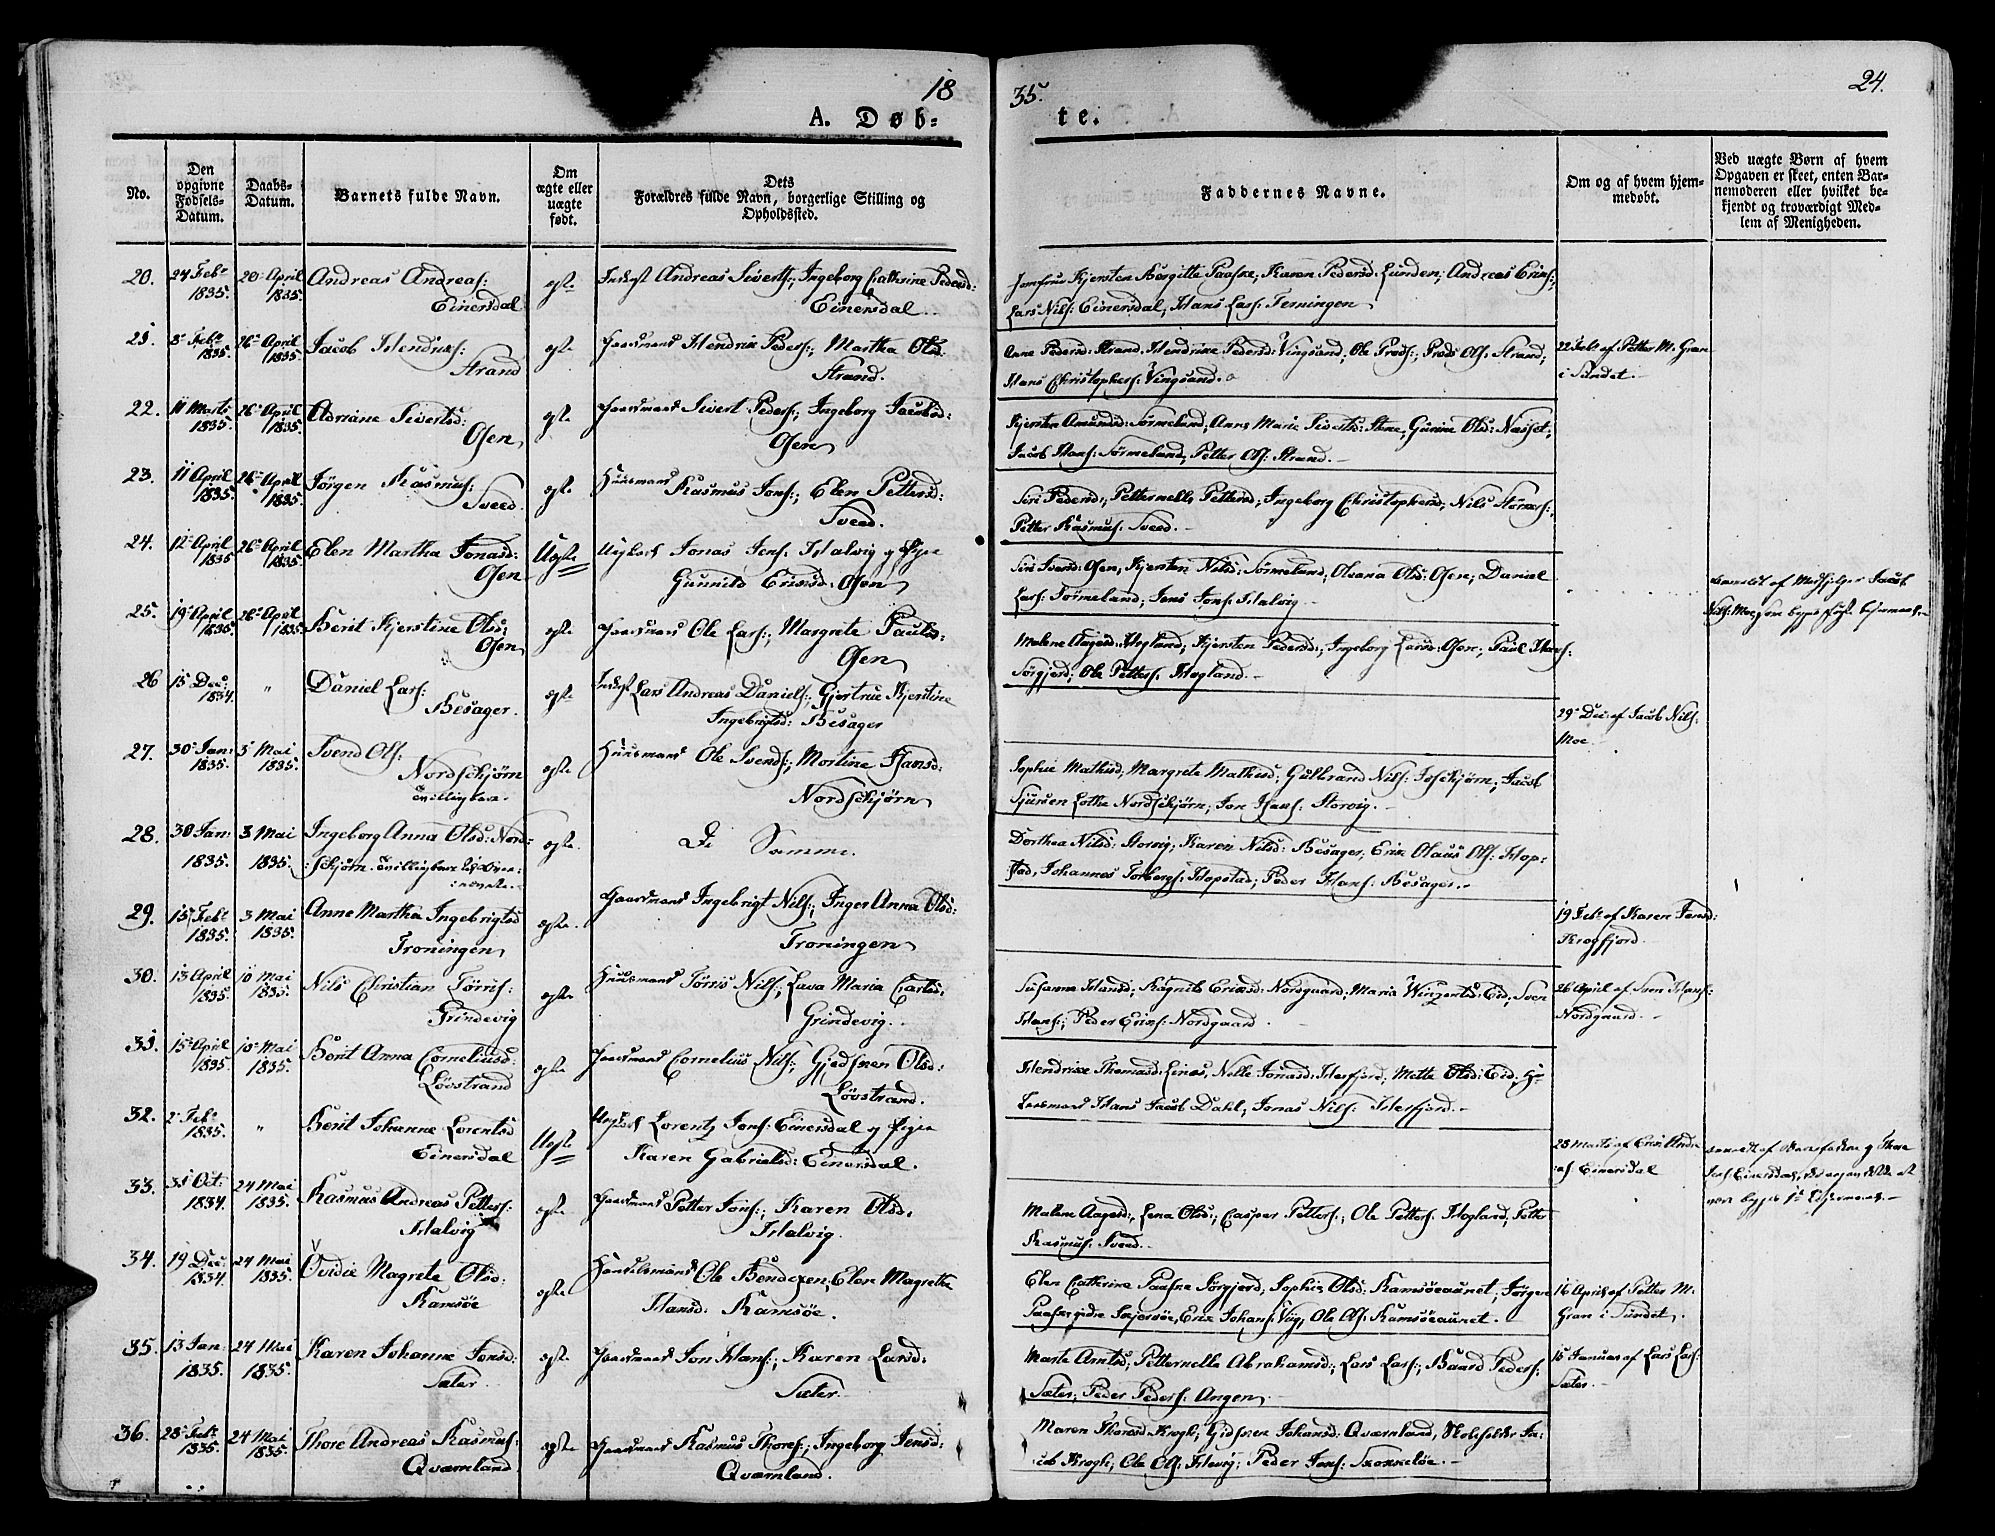 18
35.
24.
A. Døb-
te.
No.
Den opgivne Fødsels-Datum.
Daabs-Datum.
Barnets fulde Navn.
Om ægte eller uægte født.
Dets Forældres fulde Navn, borgerlige Stilling og Opholdssted.
Faddernes Navne.
Om og af hvem hjem-medøbt.
Ved uægte Børn af hvem Opgaven er skeet, enten Bar-nemoderen eller hvilket be-kjendt og troværdigt Med-lem af Menigheden.
20. 24 Febr 1835. 20 April 1835. Andreas Andreas:
Einersdal
egte Andreas Siverts:, Ingeborg Cathrine Pedersd:
Einersdal
Jomfrue Kjersten Birgitte Paaske, Karen Pedersd: Lunden, Andreas Erics:,
Lars Nils: Einersdal, Hans Lars: Terningen
21. 8 Febr 1835. 26 April 1835. Jacob Hendrics:
Strand
egte Gaardmand Hendric Peders:, Martha Olsd:
Strand.
Anne Pedersd: Strand, Hendricke Pedersd: Vingsand, Ole Prods:, Prods Ols: Strand,
Hans Christophers: Vingsand.
22 Febr af Petter M. Gran
i Sundet.
22. 11 Marts 1835. 26 April 1835. Adriane Sivertsd:
Osen
egte Gaardmand Sivert Peders:, Ingeborg Jacobsd:
Osen
Kjersten Amundsd: Sørmeland, Anne Marie Sivertsd: Stene, Gurine Olsd: Næsset,
Jacob Hans: Sørmeland, Petter Ols: Strand.
23. 11 April 1835. 26 April 1835. Jørgen Rasmus:
Sveed.
egte Huusmand Rasmus Jons:, Elen Pettersd:
Sveed.
Siri Pedersd:, Petternelle Pettersd:, Ingeborg Christophersd:, Nils
Petter Rasmus: Sveed.
24. 12 April 1835 26 April 1835. Elen Martha Jonasd:
Osen
Uegte Ungkarl Jonas Jens: Halvig og Pige
Gunnild Ericsd: Osen
Siri Svend: Osen, Kjersten Nilsd: Sørmeland, Oleana Olsd: Osen, Daniel
Lars: Sørmeland, Jens Jons: Halvig
anmeldt af Medhjelper Jacob
Nils: Moe,
25. 19 April 1835. 26 April 1835 Berit Kjerstine Olsd:
Osen
egte Gaardmand Ole Lars:, Margrete Paulsd:
Osen
Malene Aagesd: Hogland, Kjersten Pedersd:, Ingeborg Larsd: Osen, Paul Hans:
Sørgjerd, Ole Petters: Hogland.
26 15 Dec: 1834. " Daniel Lars:
Besager.
egte Lars Andreas Daniels:, Gjertrue Kjerstine
Ingebrigtsd: Besager
29 Dec: af Jacob Nils:
Moe
27. 30 Jan: 1835. 3 Mai 1835. Svend Ols:
Nordschjørn
Tvillingbarn.
egte Huusmand Ole Svends:, Martine Hansd:
Nordschjørn
Sophie Mathisd:, Margrete Mathisd:, Gulbrand Nils: Joschjørn, Jacob
Lothe Nordschjørn, Jon Hans: Storvig.
28. 30 Jan: 1835. 3 Mai 1835. Ingeborg Anna Olsd: Nord-
schjørn. Tvillingbarn
egte. De Samme.
Dorthea Nilsd: Storvig, Karen Nilsd: Besager, Eric Olaus Ols: Hop-
stad, Johannes Torbergs: Hopstad, Peder Hans: Besager.
29. 15 Febr 1835. 3 Mai 1835. Anne Martha Ingebrigtsd
Troningen
egte. Gaardmand Ingebrigt Nils:, Inger Anna Olsd:
Troningen
19 Febr af Karen Jensd:
Krogfjord.
30. 13 April 1835. 10 Mai 1835. Nils Christian Tørris:
Grindevig
egte Huusmand Tørris Nils:, Lava Maria Carlsd:
Grindevig.
Susanna Hansd:, Ragnild Ericsd: Nordgaard, Maria Winzentsd: Eid, Sven
Hans:, Peder Erics: Nordgaard.
26 April af Sven Hans:
Nordgaard.
31. 15 April 1835. 10 Mai 1835. Berit Anna Corneliusd:
Løvstrand
egte Gaardmand Cornelius Nils:, Gjedsken Olsd:
Løvstrand.
Hendricke Thomasd: Lines, Nelle Jonasd: Hosfjord, Mette Olsd: Eid,
Hans Jacob Dahl, Jonas Nils: Hosfjord.
32. 2 Febr 1835. " Berit Johanne Lorentsd
Einersdal
Uegte Ungkarl Lorentz Jons: Einersdal og Pige
Karen Gabrielsd: Einersdal.
28 Marts af Eric Andr
af Einersdal
anmeldt af Barnefaderen og Thore
33. 31 Oct: 1834. 24 Mai 1835. Rasmus Andreas Petters:
Halvig
egte Gaardmand Petter Jons:, Karen Olsd:
Halvig.
Malene Aagesd:, Lena Olsd:, Casper Petters:, Ole Petters: Hogland, Petter
Rasmus: Sveed.
34. 19 Dec: 1834. 24 Mai 1835. Ovidie Magrete Olsd:
Ramsøe
egte Handelsmand Ole Bendixen, Elen Magrethe
Hansd: Ramsøe.
Elen Cathrine Paaske Sørgjerd, Sophie Olsd: Ramsøeaunet, Jørgen
Eric Johans: Viig, Ole Ols: Ramsøeaunet.
16 April af Petter M.
Gran i Sundet.
35. 13 Jan: 1835. 24 Mai 1835. Karen Johanne Jonsd:
Sæter
egte Gaardmand Jon Hans:, Karen Larsd:
Sæter.
Marte Arntsd:, Petternelle Abrahamsd:, Lars Lars:, Baard Peders:
Sæter, Peder Peders: Angen.
15 Januar af Lars Lars:
Sæter.
36. 28 Febr 1835. 24 Mai 1835. Thore Andreas Rasmus:
Qværnland
egte Gaardmand Rasmus Thores:, Ingeborg Jensd:
Qværnland.
Maren Thoresd: Krogh, Gidsken Johansd: Qværnland, Skoleholder Ja-
cob Krogh, Ole Ols: Hovig, Peder Jons: Skonneløe.